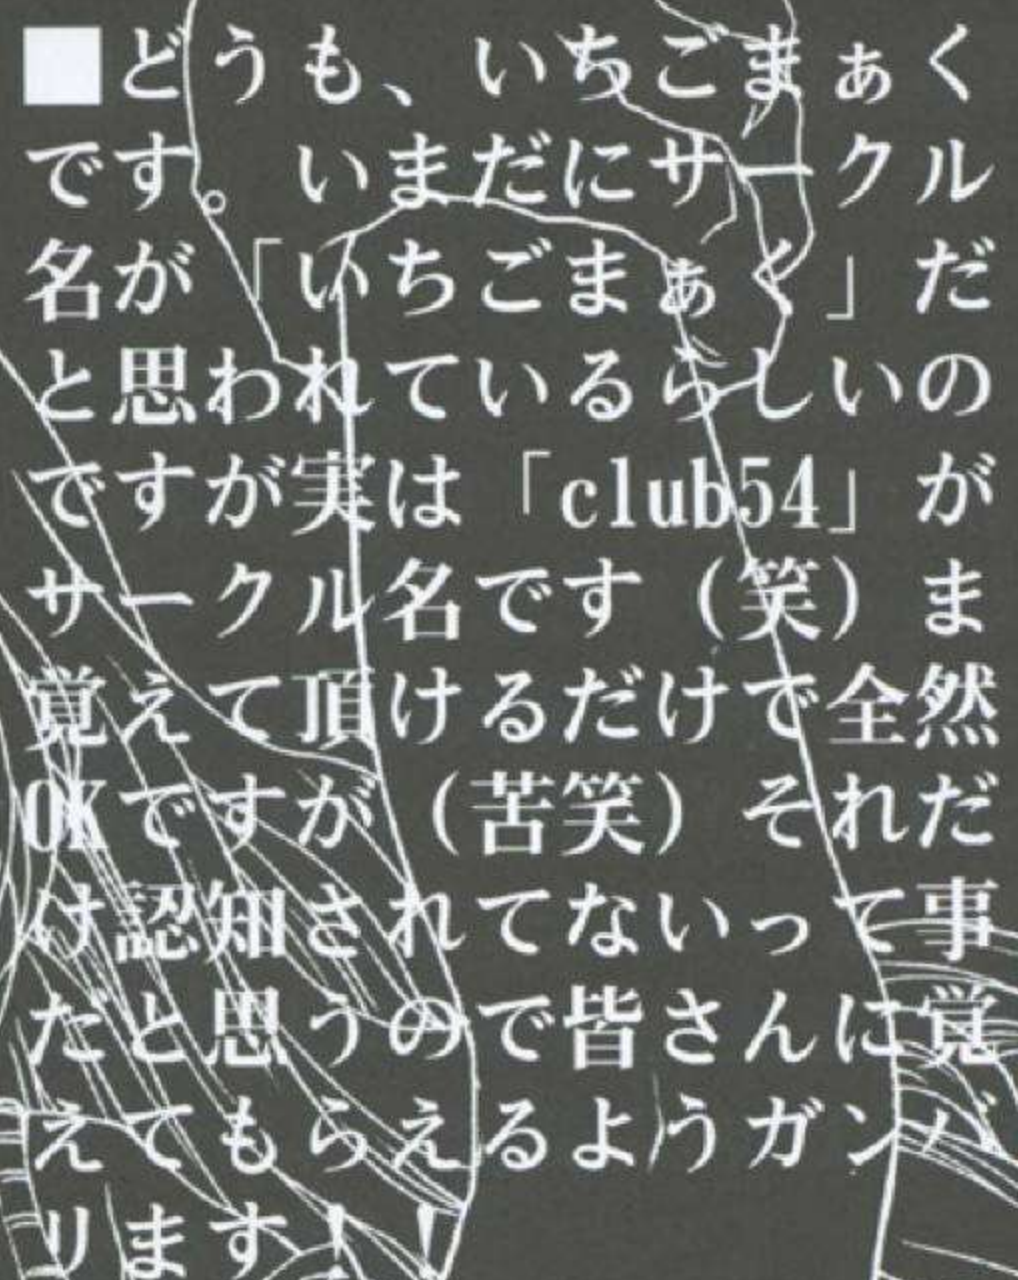 ■どうも、いちごまぁく
です。いまだにサークル
名が「いちごまぁく」だ
と思われているらしいの
ですが実は「club54」が
サークル名です（笑）ま
覚えて頂けるだけで全然
OKですが（苦笑）それだ
け認知されてないって事
だと思うので皆さんに覚
えてもらえるようガンバ
リます！！